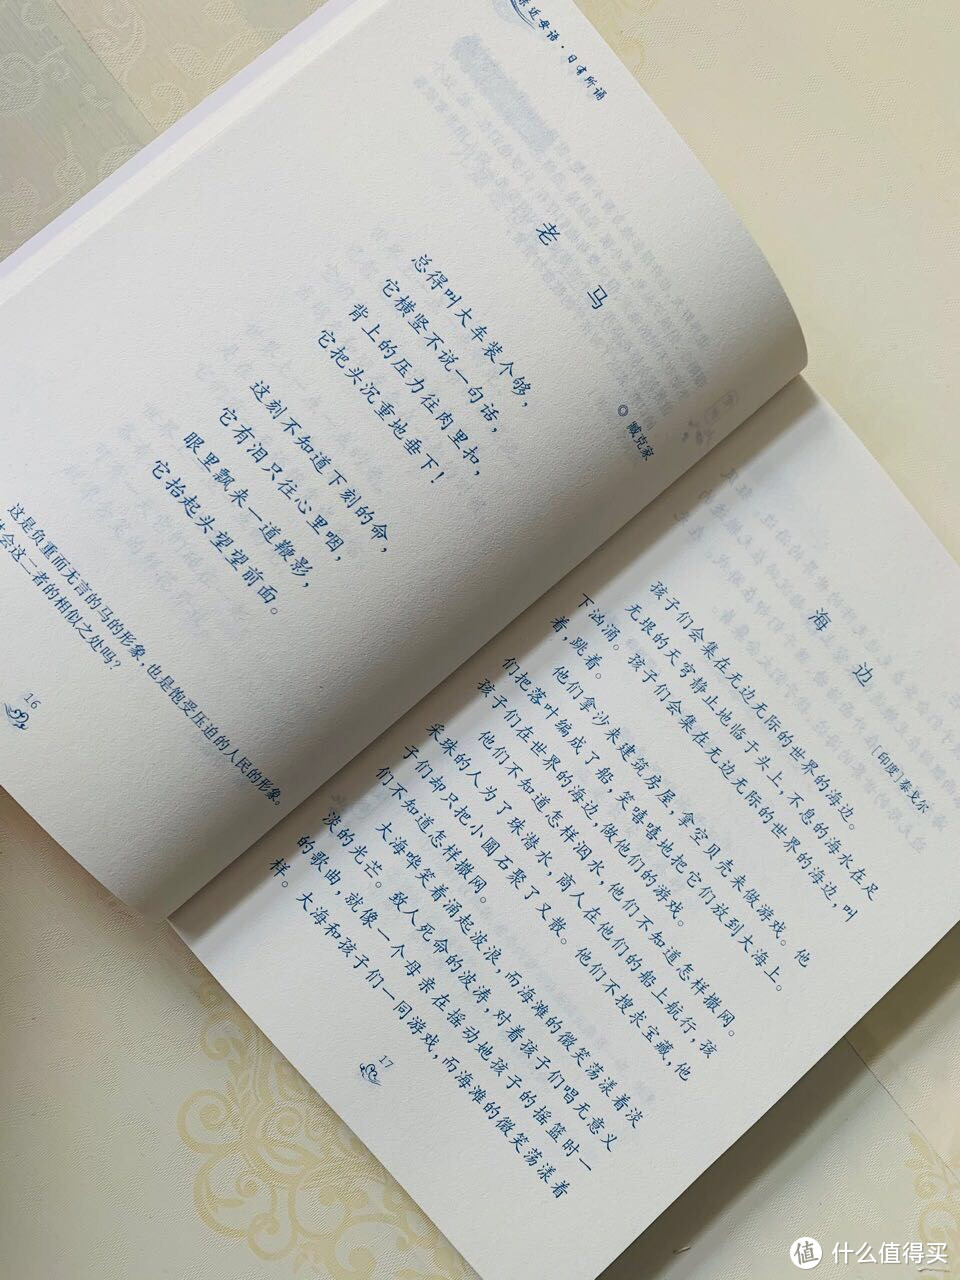 亲近母语·日有所诵
老 马
◎ 臧克家
总得叫大车装个够，
它横竖不说一句话，
背上的压力往肉里扣，
它把头沉重地垂下！
这刻不知道下刻的命，
它有泪只往心里咽，
眼里飘来一道鞭影，
它抬起头望望前面。
这是负重而无言的马的形象，也是饱受压迫的人民的形象。
体会这二者的相似之处吗？
16
海 边
［印度］泰戈尔
孩子们会集在无边无际的世界的海边。
无垠的天穹静止地临于头上，不息的海水在足
下汹涌。孩子们会集在无边无际的世界的海边，叫
着，跳着。
他们拿沙来建筑房屋，拿空贝壳来做游戏。他
们把落叶编成了船，笑嘻嘻地把它们放到大海上。
孩子们在世界的海边，做他们的游戏。
他们不知道怎样泅水，他们不知道怎样撒网。
采珠的人为了珠潜水，商人在他们的船上航行，孩
子们却只把小圆石聚了又散。他们不搜求宝藏，他
们不知道怎样撒网。
大海哗笑着涌起波浪，而海滩的微笑荡漾着淡
淡的光芒。致人死命的波涛，对着孩子们唱无意义
的歌曲，就像一个母亲在摇动她孩子的摇篮时一
样。大海和孩子们一同游戏，而海滩的微笑荡漾着
17
值 什么值得买